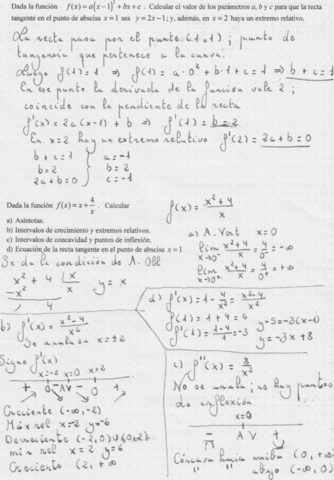 Dada la función f(x)=a(x−1)²+bx+c . Calcular el valor de los parámetros a, b y c para que la recta
tangente en el punto de abscisa x=1 sea y=2x−1; y, además, en x=2 haya un extremo relativo.
La recta pasa por el punto (1,1) ; punto de
tangencia que pertenece a la curva.
Luego f(1)=1 ⇒ f(1)=a·0²+b·1+c=1 ⇒ b+c=1
En ese punto la derivada de la función vale 2 ;
coincide con la pendiente de la recta
f'(x)=2a(x-1)+b ⇒ f'(1)=b=2
En x=2 hay un extremo relativo f'(2)=2a+b=0
b+c=1 a=-1
b=2 b=2
2a+b=0 c=-1
Dada la función f(x)=x+4/x. Calcular
a) Asíntotas.
b) Intervalos de crecimiento y extremos relativos.
c) Intervalos de concavidad y puntos de inflexión.
d) Ecuación de la recta tangente en el punto de abscisa x=1
f(x)=x²+4/x
a) A. Vert x=0
lím x²+4/x = 4/0⁻ = -∞
x→0⁻
lím x²+4/x = 4/0⁺ = +∞
x→0⁺
Se da la condición de A. Obl
x²+4 | x
-x² x
4
y=x
b) f'(x)=x²-4/x²
Se anula en x=±2
Signo f'(x)
x=-2 x=0 x=2
+ 0 - AV - 0 +
Creciente (-∞,-2)
Máx rel x=-2 y=-6
Decreciente (-2,0)∪(0,2)
mín rel x=2 y=6
Creciente (2,+∞
d) f'(x)=1-4/x²=x²-4/x²
f(1)=1+4=5
f'(1)=1-4/1=-3
y-5=-3(x-1)
y=-3x+8
c) f''(x)=8/x³
No se anula; no hay puntos
de inflexión
x=0
- AV +
∩ ∪
Cóncava hacia arriba (0,+∞)
" " abajo (-∞,0)